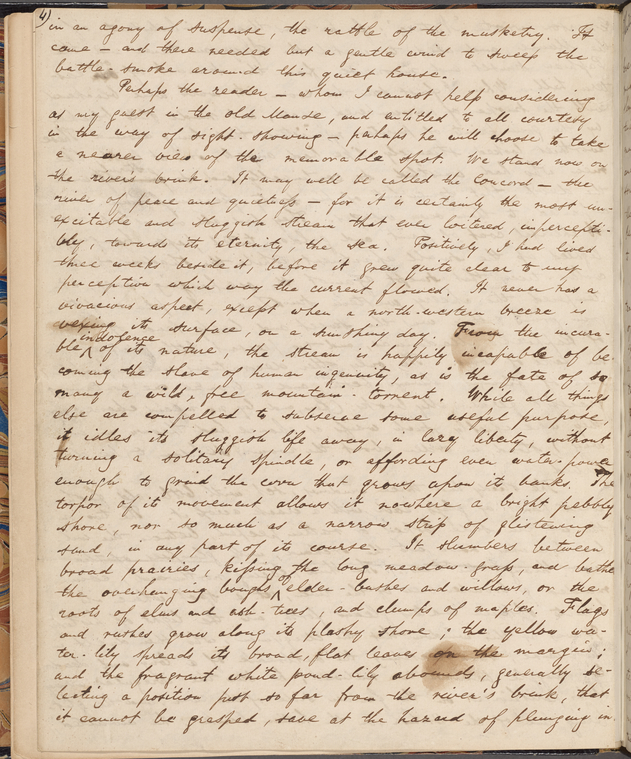 4)
in an agony of suspense, the rattle of the musketry. It
came – and there needed but a gentle wind to sweep the
battle-smoke around this quiet house.
Perhaps the reader – whom I cannot help considering
as my guest in the old Manse, and entitled to all courtesy
in the way of sight-showing – perhaps he will choose to take
a nearer view of the memorable spot. We stand now on
the river's brink. It may well be called the Concord – the
river of peace and quietness – for it is certainly the most un-
excitable and sluggish stream that ever loitered, impercepti-
bly, towards its eternity, the sea. Positively, I had lived
three weeks beside it, before it grew quite clear to my
perception which way the current flowed. It never has a
vivacious aspect, except when a north-western breeze is
vexing its surface, on a sunshiny day. From the incura-
ble indolence of its nature, the stream is happily incapable of be-
coming the slave of human ingenuity, as is the fate of so
many a wild, free mountain-torrent. While all things
else are compelled to subserve some useful purpose,
it idles its sluggish life away, in lazy liberty, without
turning a solitary spindle, or affording even water-power
enough to grind the corn that grows upon its banks. The
torpor of its movement allows it nowhere a bright pebbly
shore, nor so much as a narrow strip of glistening
sand, in any part of its course. It slumbers between
broad prairies, kissing the long meadow-grass, and bathes
the overhanging boughs of elder-bushes and willows, or the
roots of elms and ash-trees, and clumps of maples. Flags
and rushes grow along its plashy shore; the yellow wa-
ter-lily spreads its broad, flat leaves on the margin;
and the fragrant white pond-lily abounds, generally se-
lecting a position just so far from the river's brink, that
it cannot be grasped, save at the hazard of plunging in.